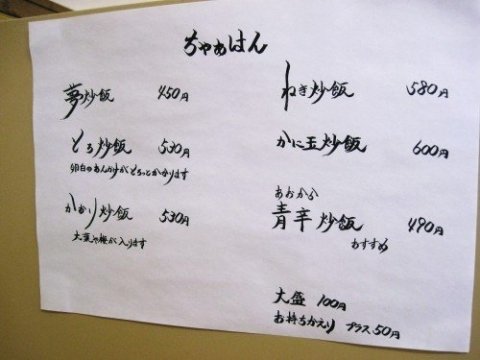 ちゃぁはん
夢炒飯 450円
とろ炒飯 530円
卵白のあんかけがとろっとかかります
かおり炒飯 530円
大葉や梅が入ります
ねぎ炒飯 580円
かに玉炒飯 600円
あおから
青辛炒飯 490円
おすすめ
大盛 100円
お持ちかえり プラス50円